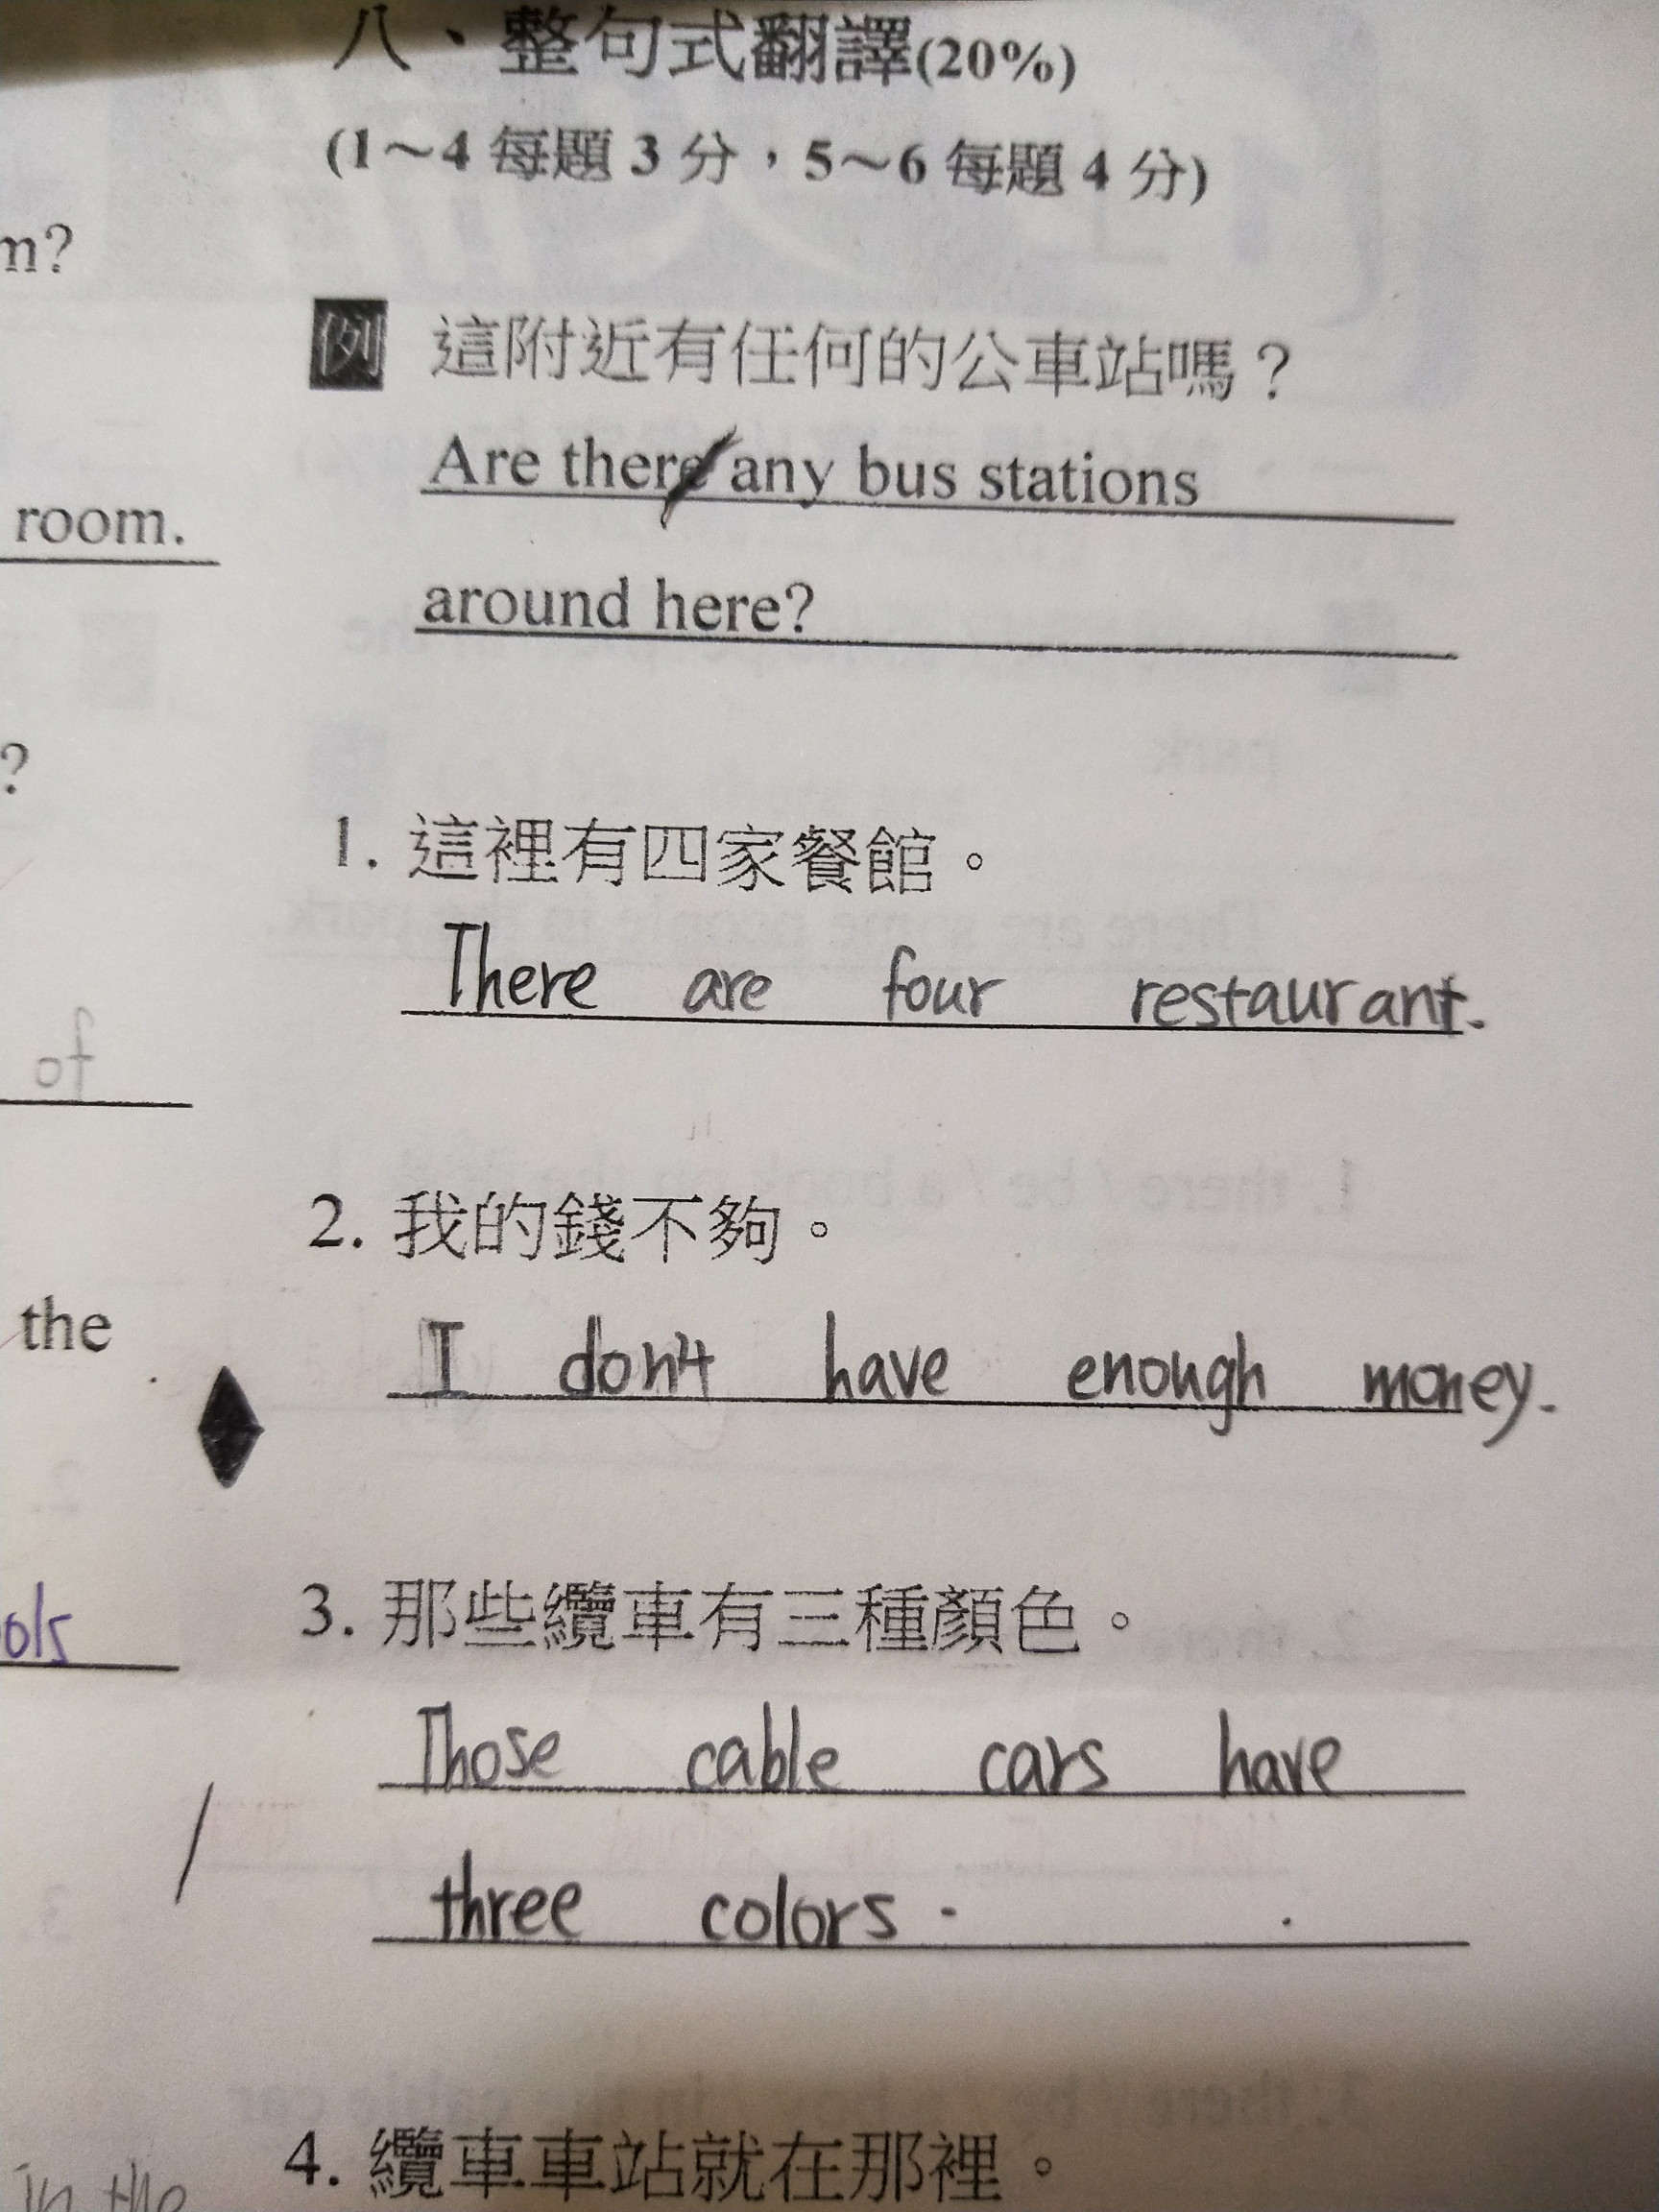 八、整句式翻譯(20%)
(1～4 每題 3 分，5～6 每題 4 分)
m?
例 這附近有任何的公車站嗎？
Are there any bus stations
room.
around here?
?
1. 這裡有四家餐館。
There are four restaurant.
of
2. 我的錢不夠。
the
I don't have enough money.
3. 那些纜車有三種顏色。
ols
Those cable cars have
three colors.
4. 纜車車站就在那裡。
in the